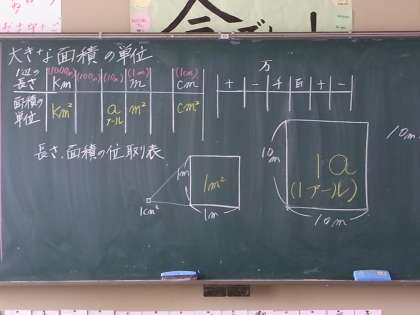 大きな面積の単位
1辺の長さ (1000m) km (100m) (10m) (1m) m (1cm) cm
面積の単位 km² a アール m² cm²
万
十 一 千 百 十 一
長さ、面積の位取り表
1m 1m² 1m
1cm²
10m 1a (1アール) 10m
10m